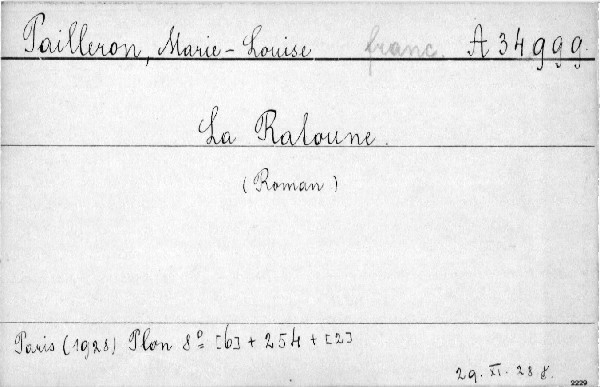 Pailleron, Marie-Louise franc. A 34999.
La Ratoune.
(Roman)
Paris (1928) Plon 8° [6] + 254 + [2]
29. XI. 28 f.
2229